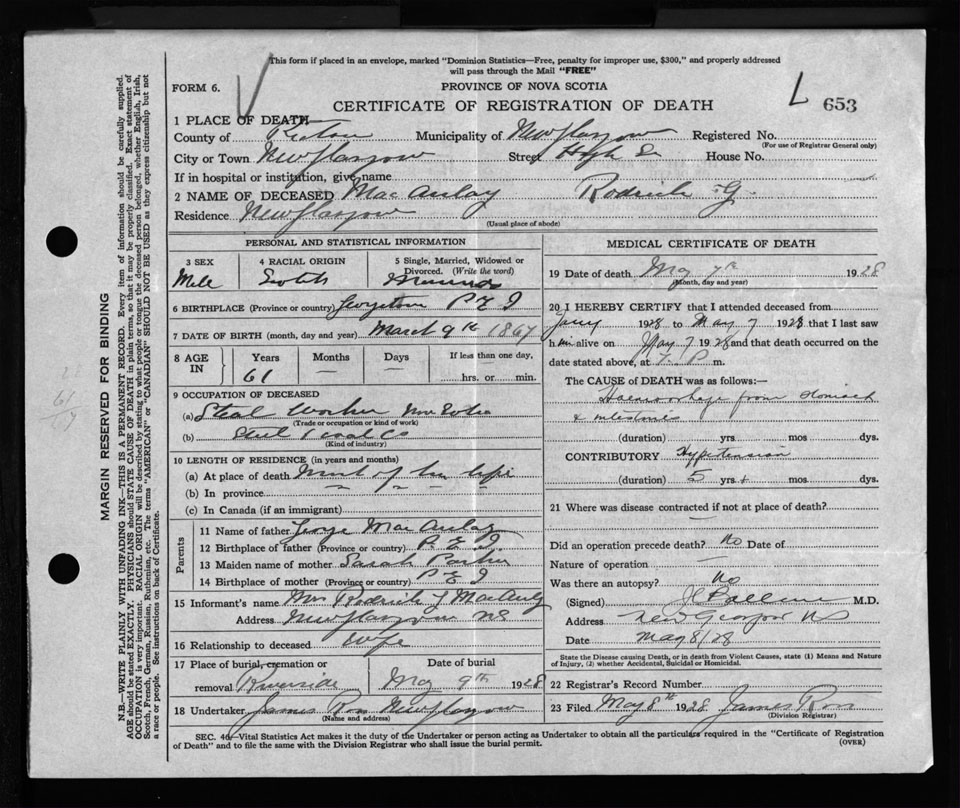 This form if placed in an envelope, marked "Dominion Statistics—Free, penalty for improper use, $300," and properly addressed
will pass through the Mail "FREE"
FORM 6.
PROVINCE OF NOVA SCOTIA
CERTIFICATE OF REGISTRATION OF DEATH
L 653
1 PLACE OF DEATH
County of Pictou Municipality of New Glasgow Registered No.
(For use of Registrar General only)
City or Town New Glasgow Street High St House No.
If in hospital or institution, give name
2 NAME OF DECEASED MacAulay Roderick G.
Residence New Glasgow
(Usual place of abode)
PERSONAL AND STATISTICAL INFORMATION
3 SEX 4 RACIAL ORIGIN 5 Single, Married, Widowed or
Divorced. (Write the word)
Male Scotch Married
6 BIRTHPLACE (Province or country) Georgetown P E I
7 DATE OF BIRTH (month, day and year) March 9th 1867
8 AGE IN Years Months Days If less than one day,
61 — — hrs. or min.
9 OCCUPATION OF DECEASED
(a) Steel Worker Nova Scotia
(Trade or occupation or kind of work)
(b) Steel & Coal Co
(Kind of industry)
10 LENGTH OF RESIDENCE (in years and months)
(a) At place of death Most of his life
(b) In province
(c) In Canada (if an immigrant)
Parents
11 Name of father George MacAulay
12 Birthplace of father (Province or country) P. E I
13 Maiden name of mother Sarah
14 Birthplace of mother (Province or country) P E I
15 Informant's name Mrs Roderick G MacAulay
Address New Glasgow NS
16 Relationship to deceased Wife
17 Place of burial, cremation or Date of burial
removal Riverside May 9th 1928
18 Undertaker James Ross New Glasgow
(Name and address)
MEDICAL CERTIFICATE OF DEATH
19 Date of death May 7th 1928
(Month, day and year)
20 I HEREBY CERTIFY that I attended deceased from
Jany 1928 to May 7 1928 that I last saw
him alive on May 7 1928 and that death occurred on the
date stated above, at 7. P m.
The CAUSE of DEATH was as follows:—
Haemorrhage from stomach
& intestines
(duration) yrs. mos dys.
CONTRIBUTORY Hypertension
(duration) 5 yrs + mos dys.
21 Where was disease contracted if not at place of death?
Did an operation precede death? No Date of
Nature of operation —
Was there an autopsy? No
(Signed) M.D.
Address New Glasgow NS
Date May 8/28
State the Disease causing Death, or in death from Violent Causes, state (1) Means and Nature
of Injury, (2) whether Accidental, Suicidal or Homicidal.
22 Registrar's Record Number
23 Filed May 8th 1928 James Ross
(Division Registrar)
SEC. 40—Vital Statistics Act makes it the duty of the Undertaker or person acting as Undertaker to obtain all the particulars required in the "Certificate of Registration
of Death" and to file the same with the Division Registrar who shall issue the burial permit.
(OVER)
MARGIN RESERVED FOR BINDING
N.B.—WRITE PLAINLY WITH UNFADING INK—THIS IS A PERMANENT RECORD. Every item of information should be carefully supplied.
AGE should be stated EXACTLY. PHYSICIANS should STATE CAUSE OF DEATH in plain terms, so that it may be properly classified. Exact statement of
OCCUPATION is very important. RACIAL ORIGIN will be described by stating to what people or tongue the deceased person belonged, whether English, Irish,
Scotch, French, German, Russian, Ruthenian, etc. The terms "AMERICAN" or "CANADIAN" SHOULD NOT BE USED as they express citizenship but not
a race or people. See instructions on back of Certificate.